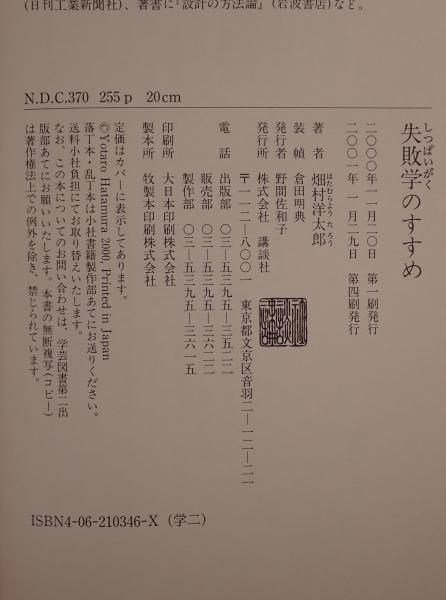 (日刊工業新聞社)、著書に『設計の方法論』(岩波書店)など。
N.D.C.370 255p 20cm
しっぱいがく
失敗学のすすめ
二〇〇〇年一一月二〇日 第一刷発行
二〇〇一年 一月二九日 第四刷発行
著者 畑村洋太郎
はたむらようたろう
装幀 倉田明典
発行者 野間佐和子
発行所 株式会社 講談社
〒一一二—八〇〇一 東京都文京区音羽二—一二—二一
電話 出版部 〇三—五三九五—三五二二
販売部 〇三—五三九五—三六二二
製作部 〇三—五三九五—三六一五
印刷所 大日本印刷株式会社
製本所 牧製本印刷株式会社
定価はカバーに表示してあります。
©Yotaro Hatamura 2000, Printed in Japan
落丁本・乱丁本は小社書籍製作部あてにお送りください。
送料小社負担にてお取り替えいたします。
なお、この本についてのお問い合わせは、学芸図書第二出
版部あてにお願いいたします。本書の無断複写(コピー)
は著作権法上での例外を除き、禁じられています。
ISBN4-06-210346-X (学二)